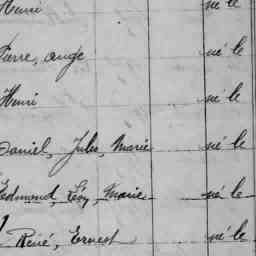 Henri né le
Pierre, ange né le
Henri né le
Daniel, Jules, Marie né le
Edmond, Léoy, Marie né le
René, Ernest né le